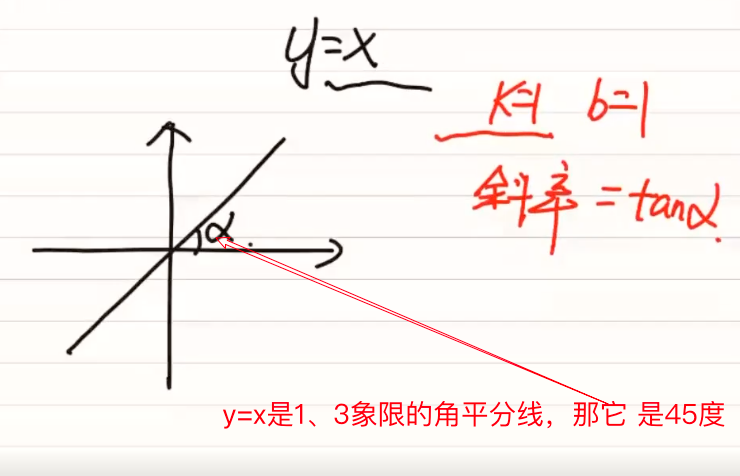 y=x
k=1 b=1
斜率=tanα
α
y=x是1、3象限的角平分线，那它 是45度